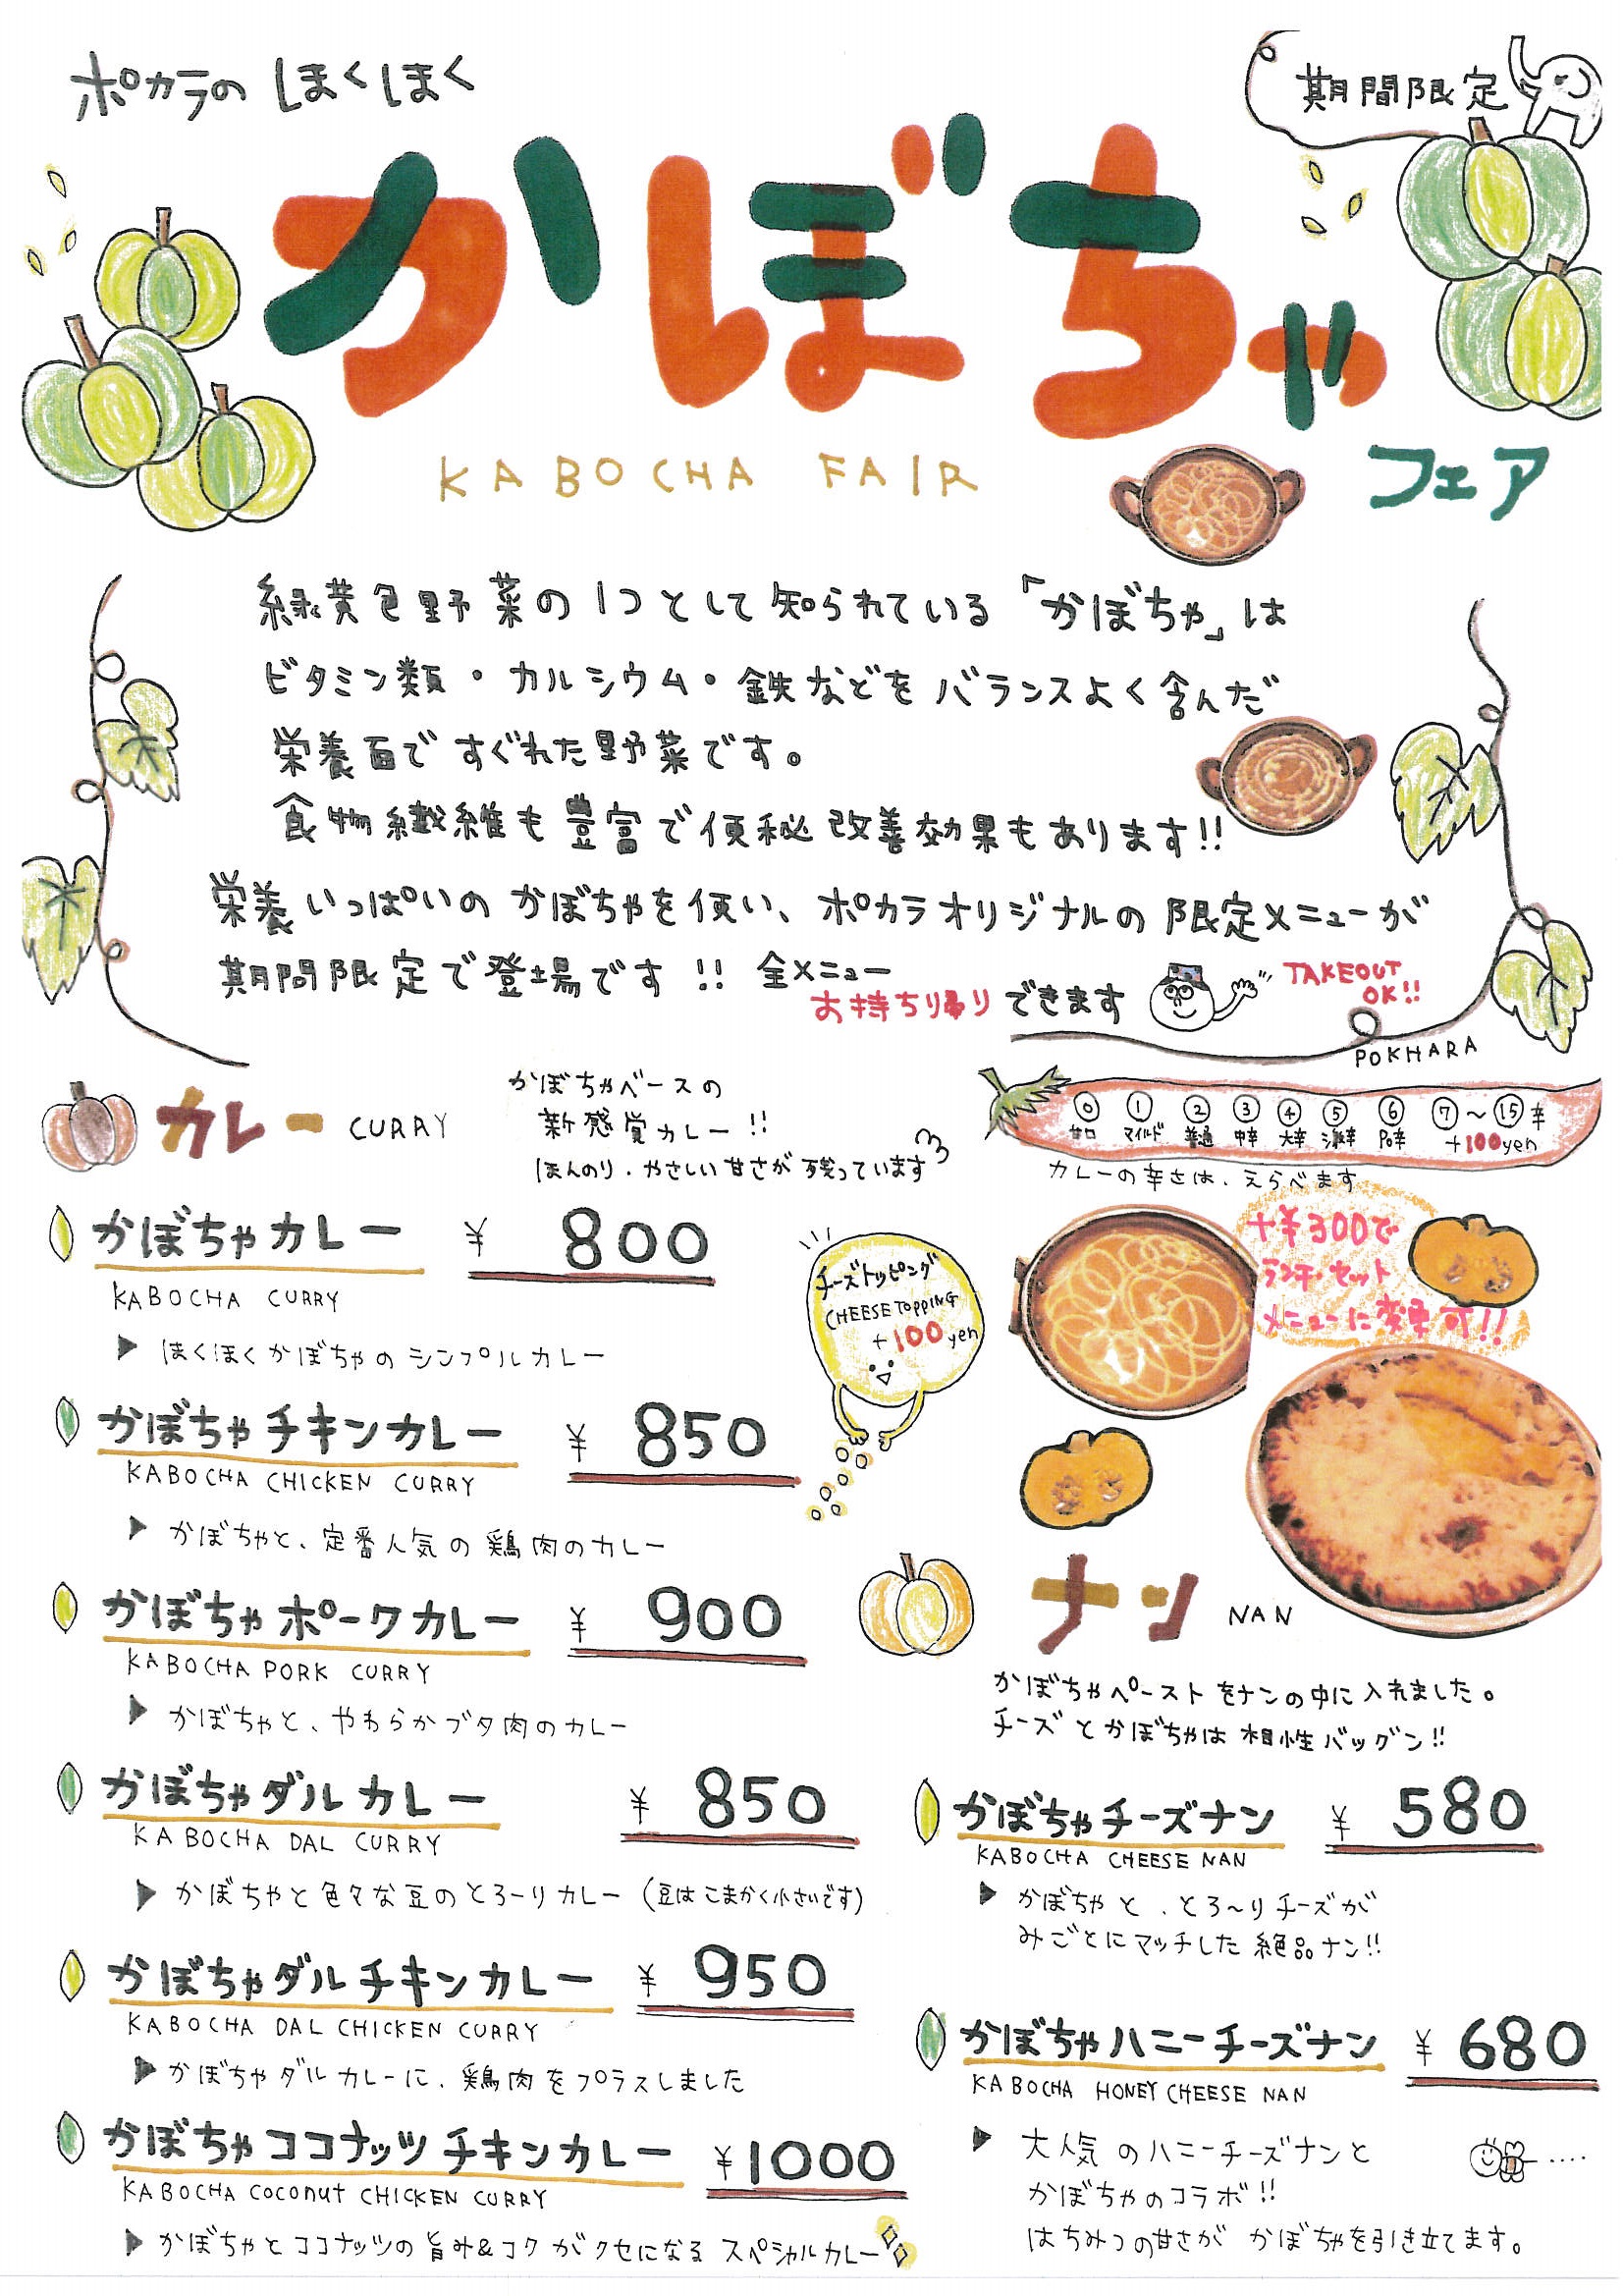 ポカラの ほくほく
期間限定
かぼちゃ
フェア
KABOCHA FAIR
緑黄色野菜の1つとして知られている「かぼちゃ」は
ビタミン類・カルシウム・鉄などをバランスよく含んだ
栄養面ですぐれた野菜です。
食物繊維も豊富で便秘改善効果もあります!!
栄養いっぱいのかぼちゃを使い、ポカラオリジナルの限定メニューが
期間限定で登場です!! 全メニュー
お持ち帰りできます
TAKEOUT
OK!!
POKHARA
カレー CURRY
かぼちゃベースの
新感覚カレー!!
ほんのり、やさしい甘さが残っています
⓪ ① ② ③ ④ ⑤ ⑥ ⑦～⑮辛
甘口 マイルド 普通 中辛 大辛 激辛 Po辛 +100yen
カレーの辛さは、えらべます
かぼちゃカレー ¥800
KABOCHA CURRY
▶ ほくほくかぼちゃのシンプルカレー
かぼちゃチキンカレー ¥850
KABOCHA CHICKEN CURRY
▶ かぼちゃと、定番人気の鶏肉のカレー
かぼちゃポークカレー ¥900
KABOCHA PORK CURRY
▶ かぼちゃと、やわらかブタ肉のカレー
かぼちゃダルカレー ¥850
KABOCHA DAL CURRY
▶ かぼちゃと色々な豆のとろーりカレー（豆はこまかく小さいです）
かぼちゃダルチキンカレー ¥950
KABOCHA DAL CHICKEN CURRY
▶ かぼちゃダルカレーに、鶏肉をプラスしました
かぼちゃココナッツチキンカレー ¥1000
KABOCHA COCONUT CHICKEN CURRY
▶ かぼちゃとココナッツの旨み&コクがクセになるスペシャルカレー
チーズトッピング
CHEESE TOPPING
+100yen
+¥300で
ランチ・セット
メニューに変更可!!
ナン NAN
かぼちゃペーストをナンの中に入れました。
チーズとかぼちゃは相性バッグン!!
かぼちゃチーズナン ¥580
KABOCHA CHEESE NAN
▶ かぼちゃと、とろ～りチーズが
みごとにマッチした絶品ナン!!
かぼちゃハニーチーズナン ¥680
KABOCHA HONEY CHEESE NAN
▶ 大人気のハニーチーズナンと
かぼちゃのコラボ!!
はちみつの甘さが かぼちゃを引き立てます。